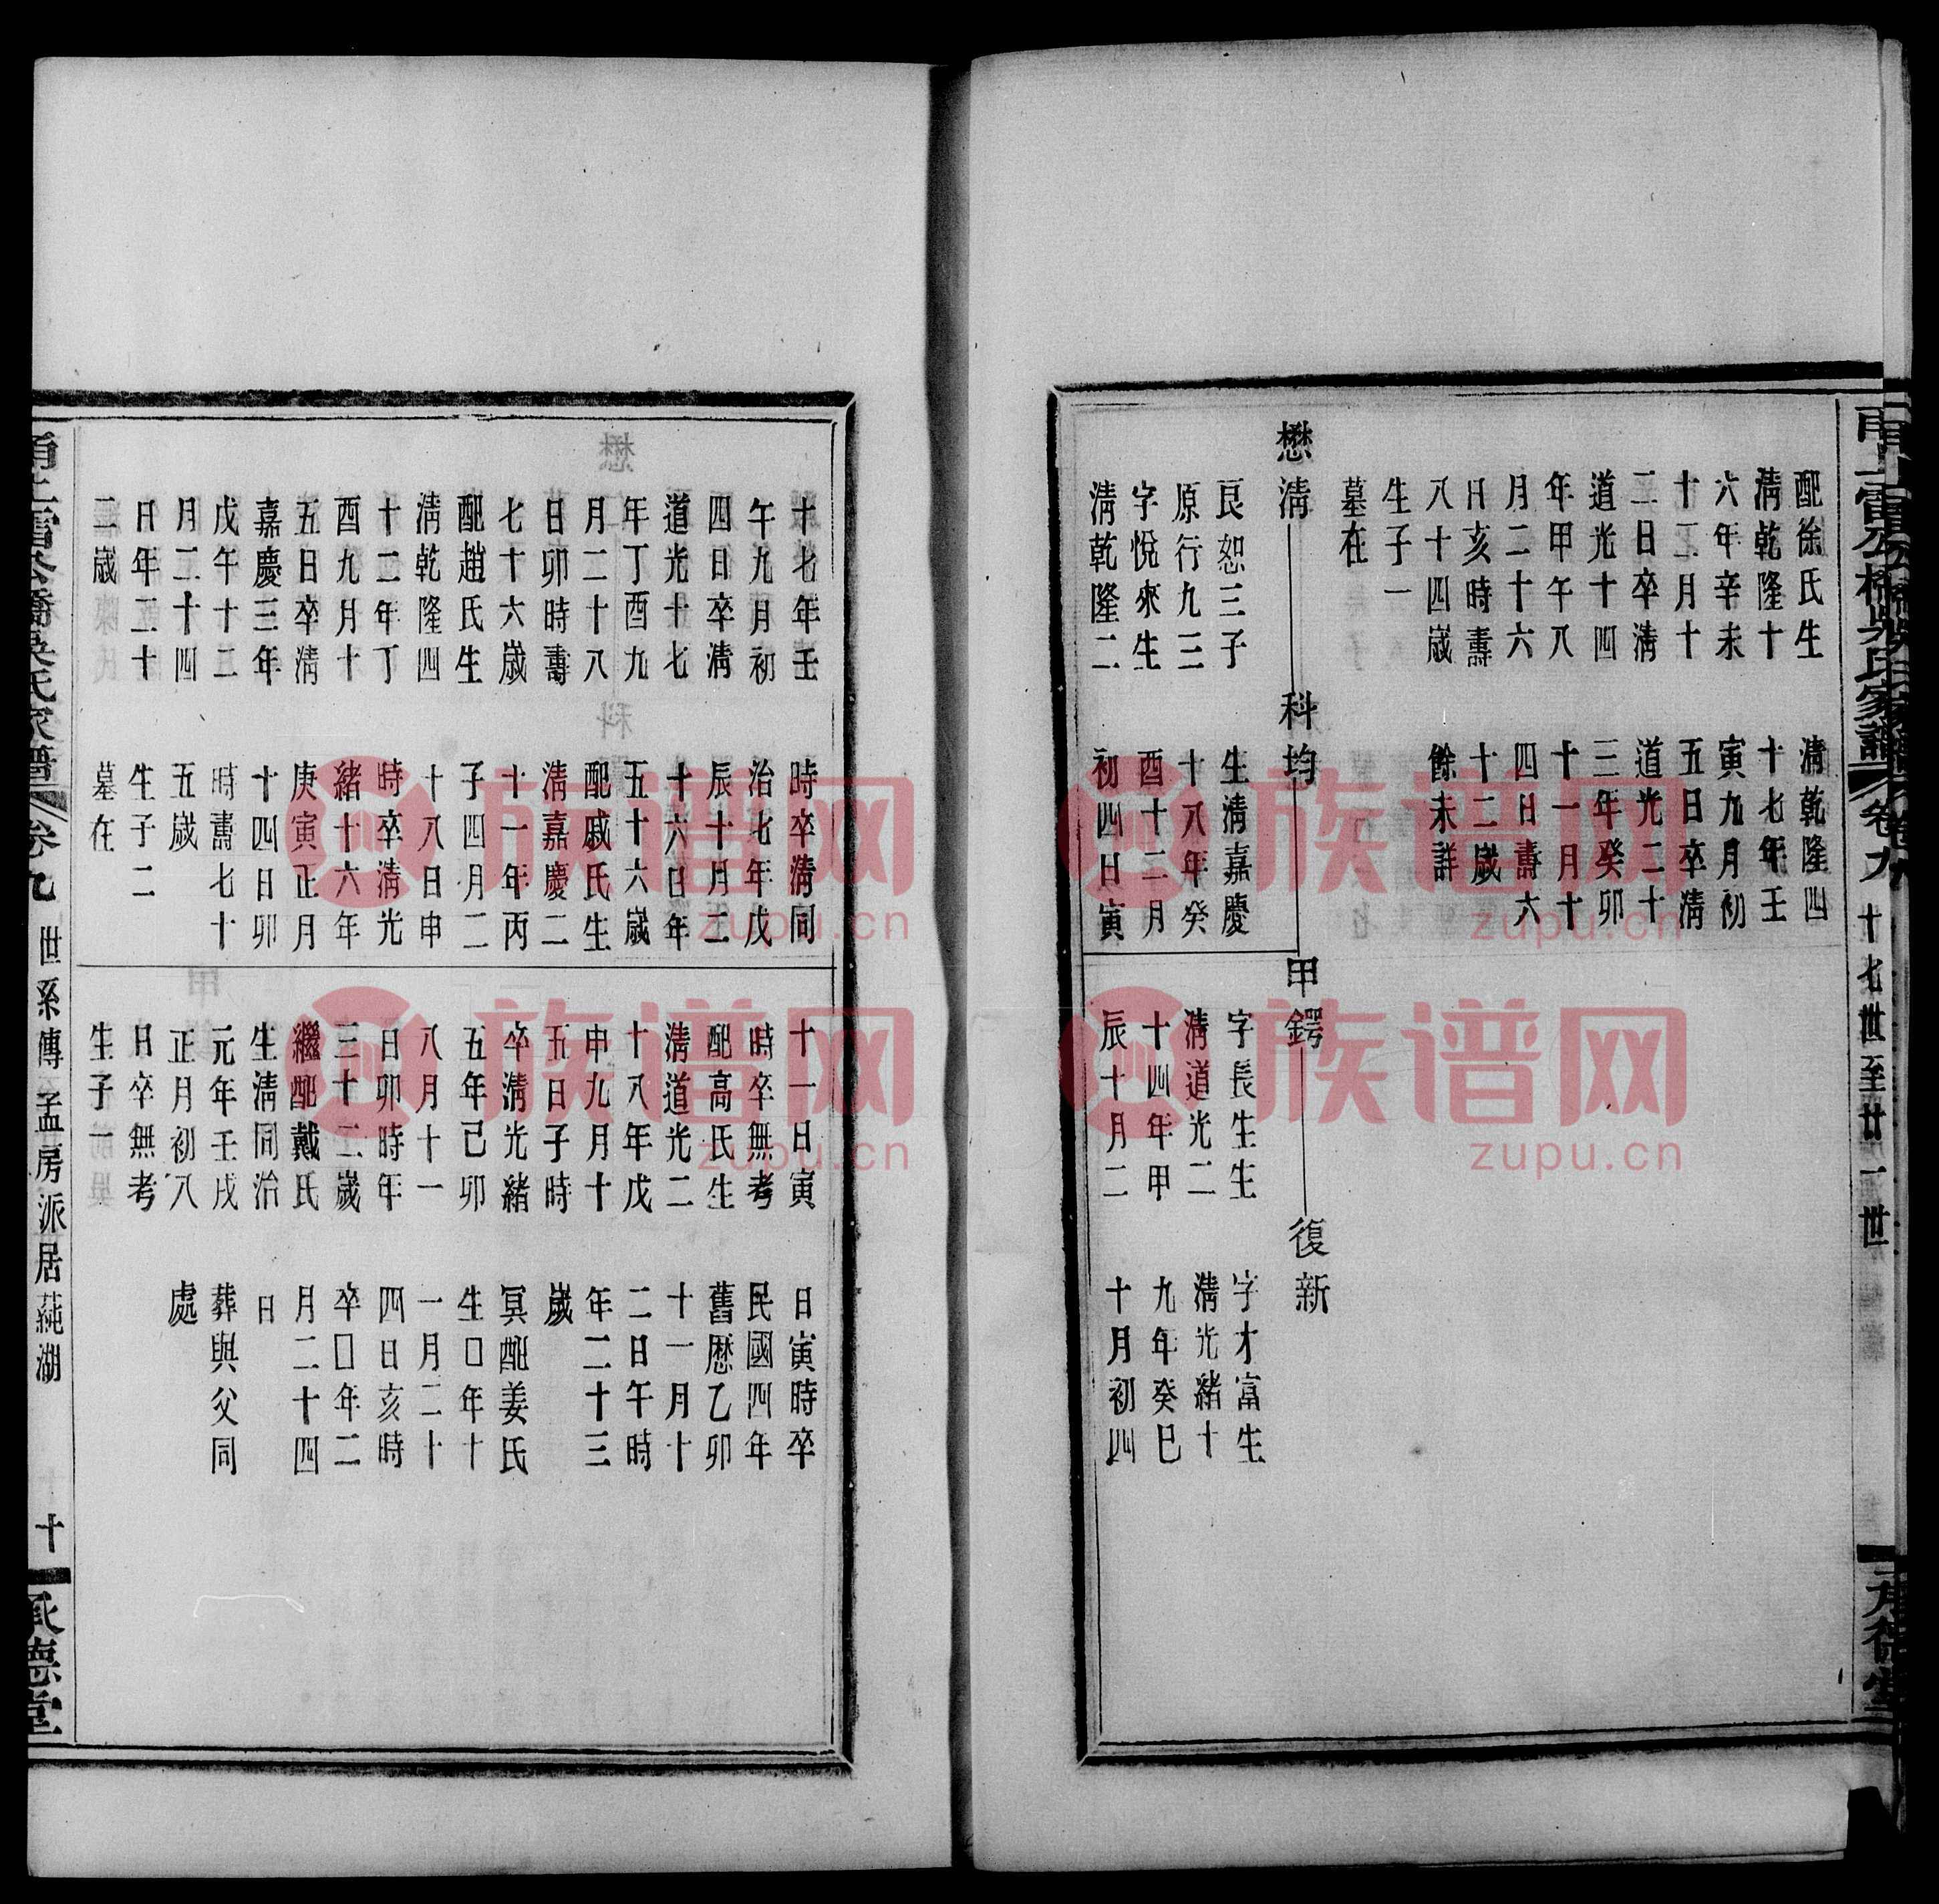 配徐氏生
清乾隆十
六年辛未
十二月十
二日卒清
道光十四
年甲午八
月二十六
日亥時壽
八十四歲
生子一
墓在
清乾隆四
十七年壬
寅九月初
五日卒清
道光二十
三年癸卯
十一月十
四日壽六
十二歲
餘未詳
懋清
科均
甲鍔
復新
良恕三子
原行九三
字悅來生
清乾隆二
生清嘉慶
十八年癸
酉十二月
初四日寅
字長生生
清道光二
十四年甲
辰十月二
字才富生
清光緒十
九年癸巳
十月初四
卷九
十七世至廿一世
十七年壬
午九月初
四日卒清
道光十七
年丁酉九
月二十八
日卯時壽
七十六歲
配趙氏生
清乾隆四
十二年丁
酉九月十
五日卒清
嘉慶三年
戊午十二
月二十四
日年二十
二歲
時卒清同
治七年戊
辰十月二
十六日年
五十六歲
配戚氏生
清嘉慶二
十一年丙
子四月二
十八日申
時卒清光
緒十六年
庚寅正月
十四日卯
時壽七十
五歲
生子二
墓在
十一日寅
時卒無考
配高氏生
清道光二
十八年戊
申九月十
五日子時
卒清光緒
五年己卯
八月十一
日卯時年
三十二歲
繼配戴氏
生清同治
元年壬戌
正月初八
日卒無考
生子一
日寅時卒
民國四年
舊曆乙卯
十一月十
二日午時
年二十三
歲
冥配姜氏
生□年十
一月二十
四日亥時
卒□年二
月二十四
日
葬與父同
處
卷九
世系傳 孟房派居蒓湖
十
承德堂
族谱网
zupu.cn
族谱网
zupu.cn
族谱网
zupu.cn
族谱网
zupu.cn